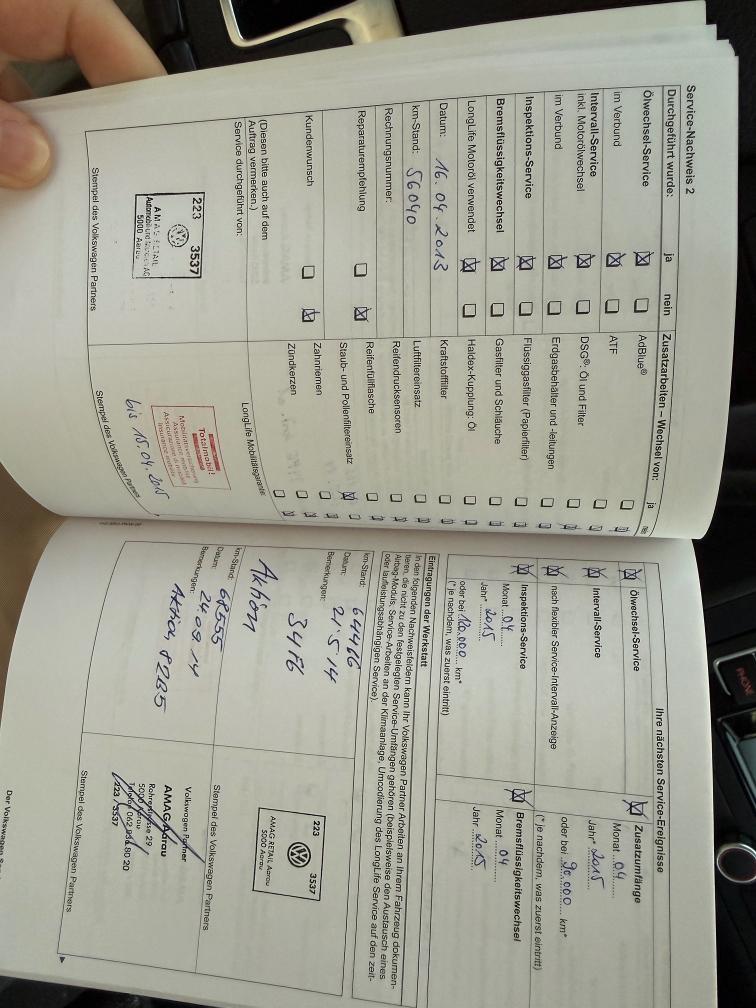 Service-Nachweis 2
Durchgeführt wurde:
ja
nein
Ölwechsel-Service
im Verbund
Intervall-Service
inkl. Motorölwechsel
im Verbund
Inspektions-Service
Bremsflüssigkeitswechsel
LongLife Motoröl verwendet
Datum: 16.04.2013
km-Stand: 56040
Rechnungsnummer:
Reparaturempfehlung
Kundenwunsch
(Diesen bitte auch auf dem
Auftrag vermerken.)
Service durchgeführt von:
223 3537
AMAG RETAIL
5000 Aarau
Stempel des Volkswagen Partners
Zusatzarbeiten – Wechsel von:
ja
AdBlue®
ATF
DSG®: Öl und Filter
Erdgasbehälter und -leitungen
Flüssiggasfilter (Papierfilter)
Gasfilter und Schläuche
Haldex-Kupplung: Öl
Kraftstofffilter
Luftfiltereinsatz
Reifendrucksensoren
Reifenfüllflasche
Staub- und Pollenfiltereinsatz
Zahnriemen
Zündkerzen
LongLife Mobilitätsgarantie:
Totalmobil!
bis 15.04.2015
Stempel des Volkswagen Partners
Ihre nächsten Service-Ereignisse
Ölwechsel-Service
Intervall-Service
nach flexibler Service-Intervall-Anzeige
Inspektions-Service
Monat 04
Jahr 2015
oder bei 120.000 km*
(*je nachdem, was zuerst eintritt)
Zusatzumfänge
Monat 04
Jahr* 2015
oder bei 90.000 km*
(*je nachdem, was zuerst eintritt)
Bremsflüssigkeitswechsel
Monat 04
Jahr 2015
Eintragungen der Werkstatt
In den folgenden Nachweisfeldern kann Ihr Volkswagen Partner Arbeiten an Ihrem Fahrzeug dokumen-
tieren, die nicht zu den festgelegten Service-Umfängen gehören (beispielsweise den Austausch eines
Airbag-Moduls, Service-Arbeiten an der Klimaanlage, Umcodierung des LongLife Service auf den zeit-
oder laufleistungsabhängigen Service).
km-Stand: 64466
Datum: 21.5.14
Bemerkungen:
34F6
Aktion
223 3537
AMAG RETAIL Aarau
5000 Aarau
Stempel des Volkswagen Partners
km-Stand: 68555
Datum: 24.09.14
Bemerkungen:
Aktion
Volkswagen Partner
AMAG Aarau
29
5000 Aarau
223 3537
Stempel des Volkswagen Partners
Der Volkswagen
PHONE